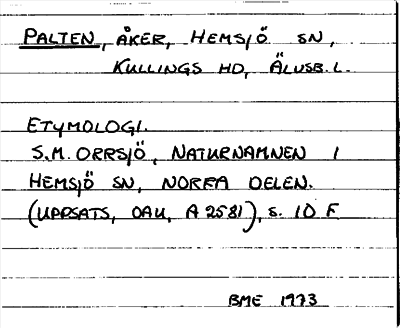 PALTEN, ÅKER, HEMSJÖ SN,
KULLINGS HD, ÄLVSB. L.
ETYMOLOGI.
S.M. ORRSJÖ, NATURNAMNEN I
HEMSJÖ SN, NORRA DELEN.
(UPPSATS, OAU, A 2581), S. 10 F
BME 1973